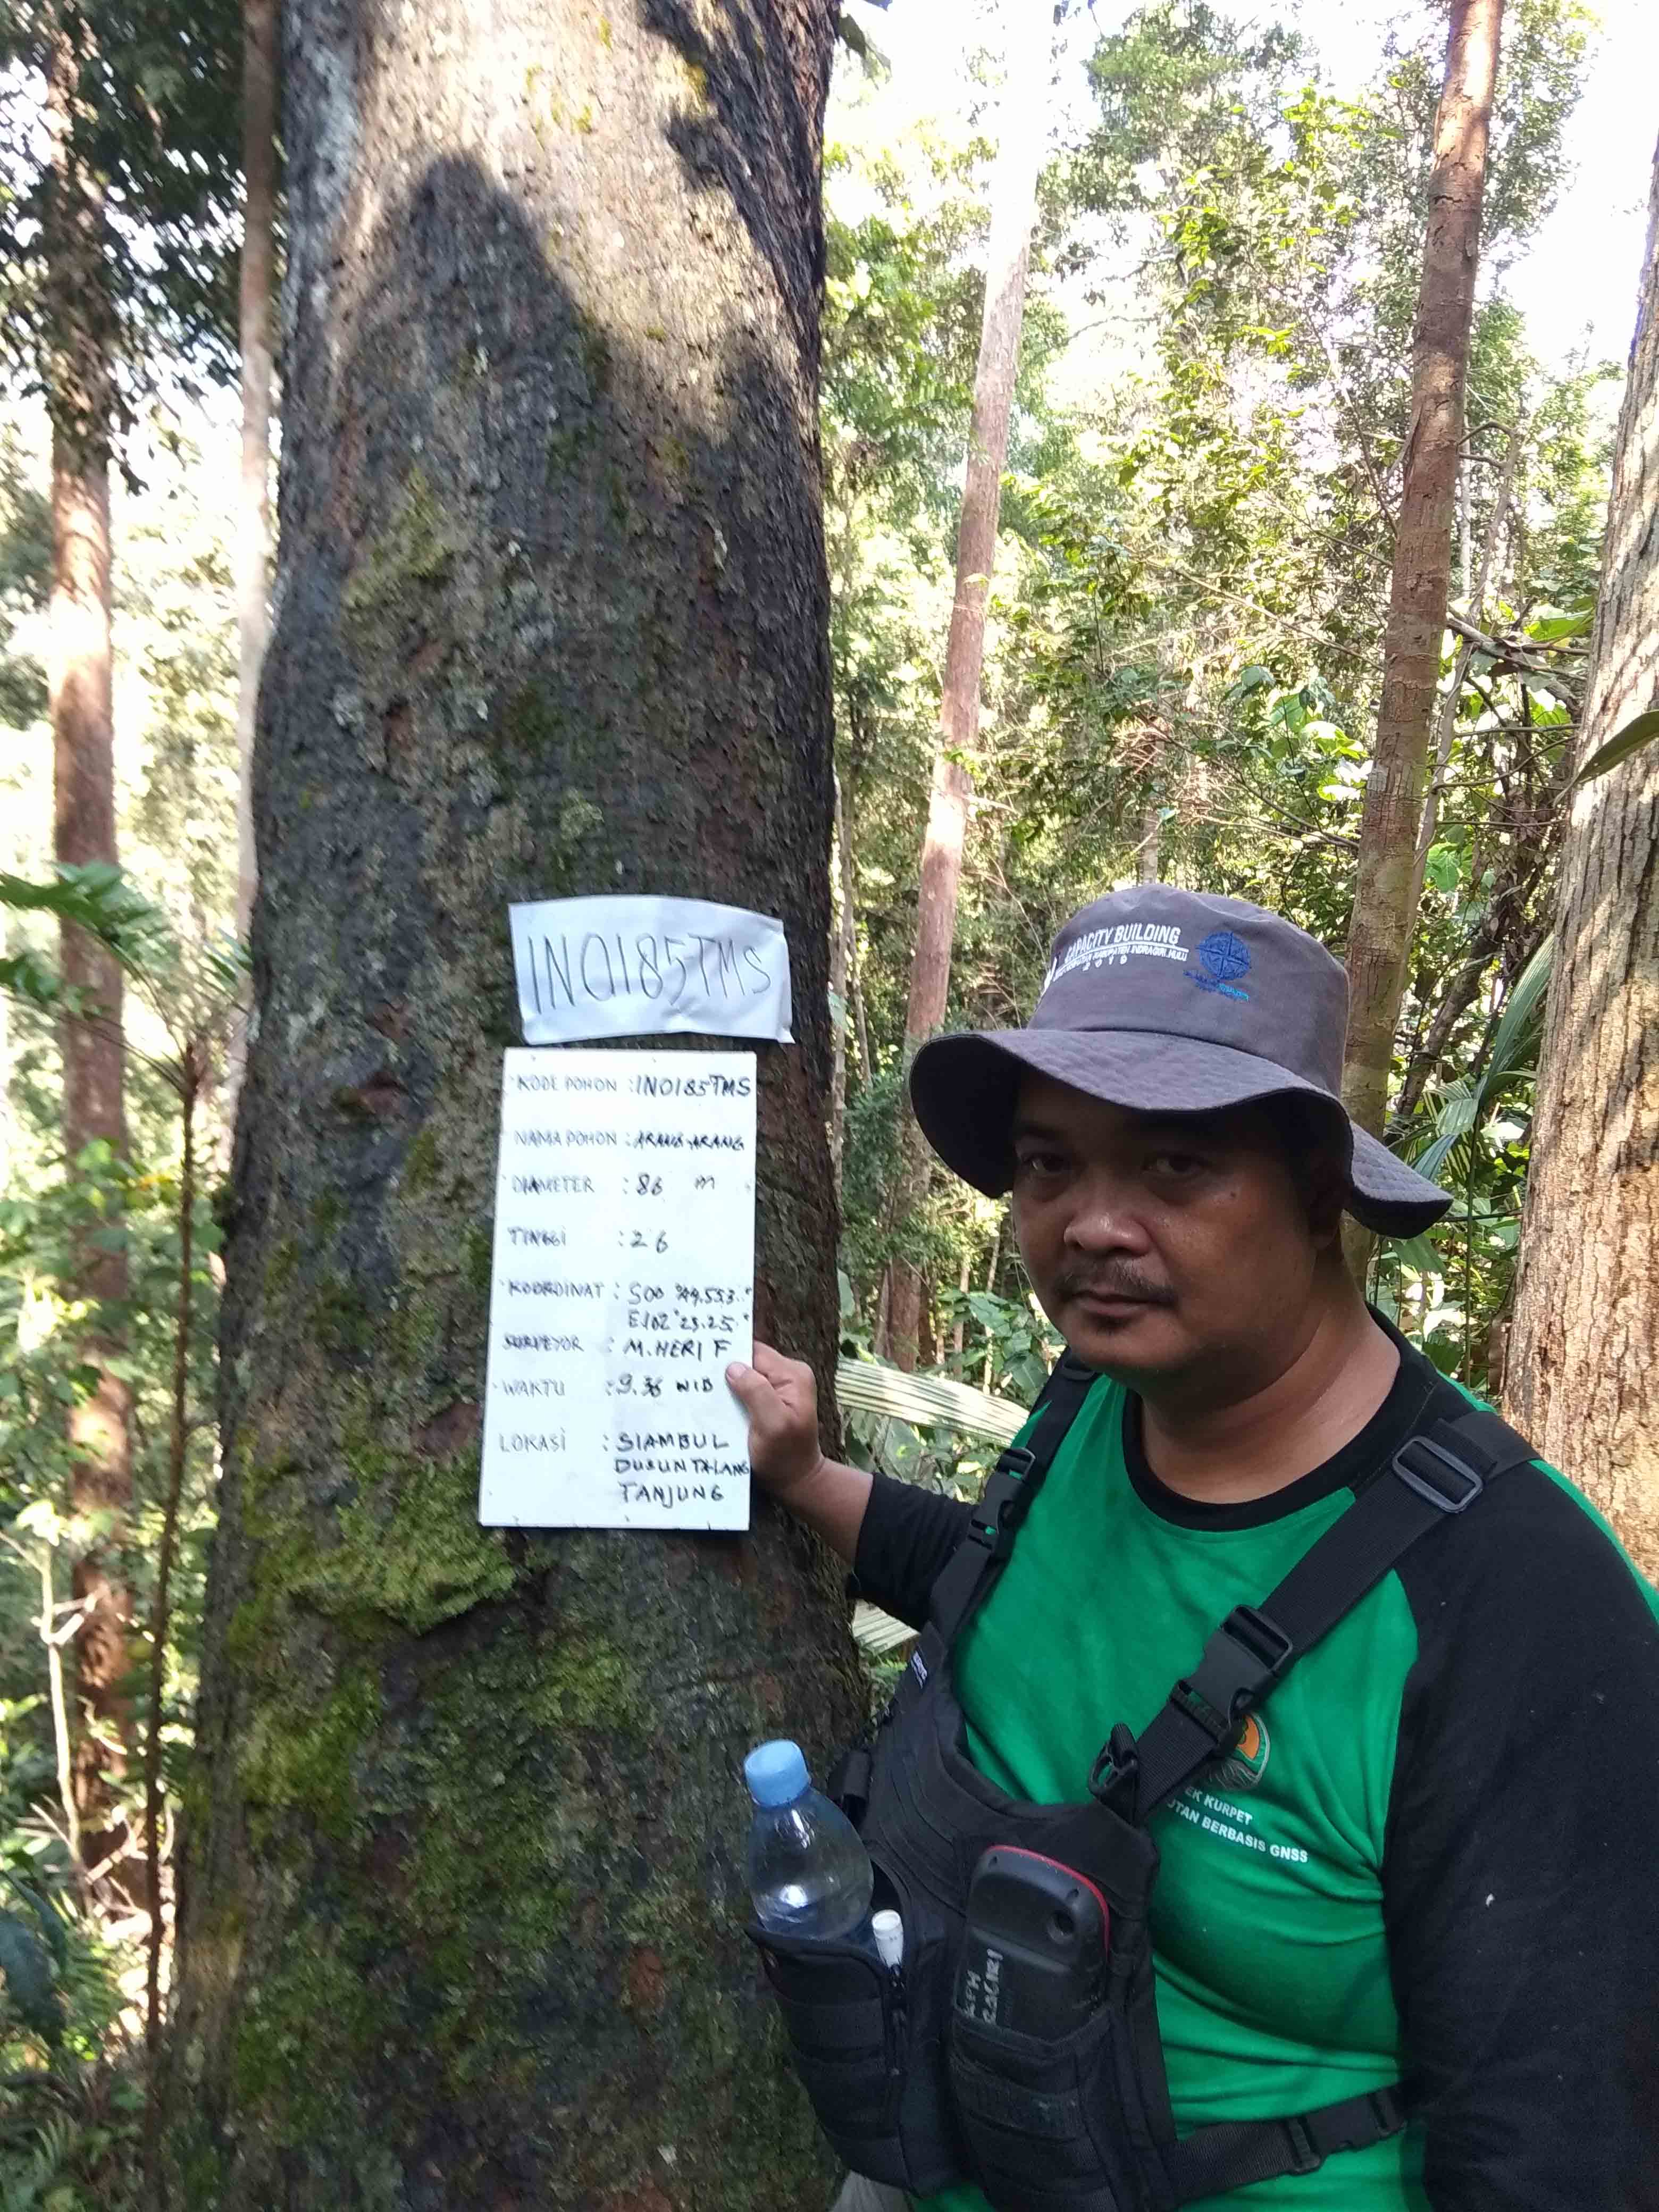 IN0185TMS
KODE POHON : IN0185TMS
NAMA POHON : ARANG-ARANG
DIAMETER : 86 m
TINGGI : 26
KOORDINAT : S00
E102°23.25."
SURVEYOR : M.HERI F
WAKTU : 9.36 WIB
LOKASI : SIAMBUL
DUSUN TALANG
TANJUNG
CAPACITY BUILDING
KABUPATEN INDRAGIRI HULU
2019
EK KURPET
UTAN BERBASIS GNSS
KPH
RAGIRI